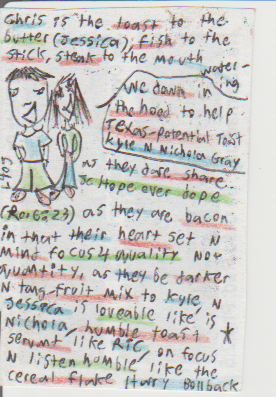 Chris is the toast to the
butter (Jessica), fish to the
stick, steak to the mouth
watering
We down in
the hood to help
Texas-potential Toast
Kyle N Nichola Gray
N they dare share
Hope over dope
(Ro:6:23) as they are bacon
in that their heart set N
mind focus 4 quality not
quantity, as they be darker
N tang fruit mix to Kyle N
Jessica is loveable like is
Nichola, humble toast
servant, like Ric, on focus
N listen humble like the
cereal flake Harv Bollback